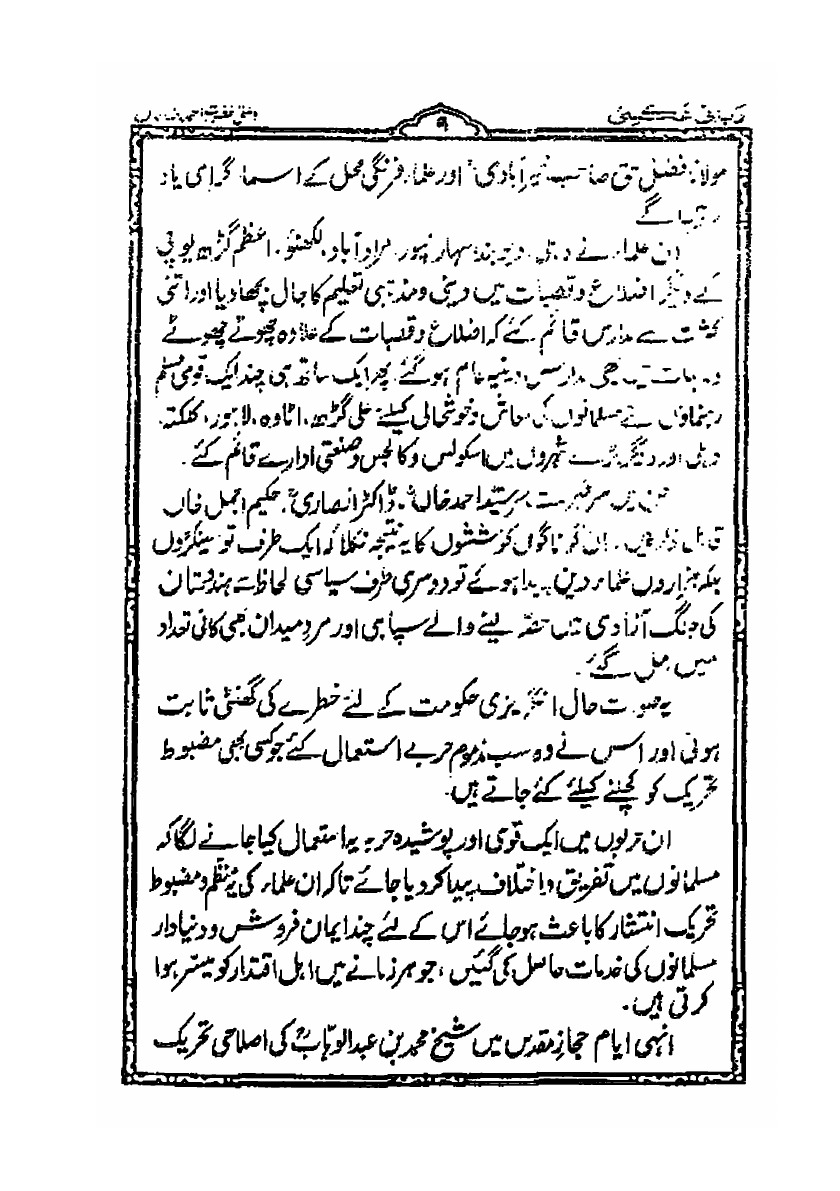 ۹
مولانا فضل حق صاحب خیرآبادیؒ اور علماء فرنگی محل کے اسماء گرامی یاد
گے
ان علماء نے دہلی، دیوبند، سہارنپور، مرادآباد، لکھنؤ، اعظم گڑھ یوپی
کے دیگر اضلاع و قصبات میں دینی و مذہبی تعلیم کا جال بچھا دیا اور اتنی
کثرت سے مدارس قائم کئے کہ اضلاع و قصبات کے علاوہ چھوٹے چھوٹے
دیہات میں بھی مدارس دینیہ عام ہوگئے، پھر ایک ساتھ ہی چند ایک قومی مسلم
رہنماؤں نے مسلمانوں کی معاشی و خوشحالی کیلئے علی گڑھ، اٹاوہ، لاہور، کلکتہ،
دہلی اور دیگر بڑے شہروں میں اسکولس و کالجس و صنعتی ادارے قائم کئے۔
جن میں سرفہرست سرسید احمد خاںؒ، ڈاکٹر انصاریؒ، حکیم اجمل خاں
قابل ذکر ہیں۔ ان کوششوں کا یہ نتیجہ نکلا کہ ایک طرف تو سینکڑوں
بلکہ ہزاروں علماء دین پیدا ہوئے تو دوسری طرف سیاسی لحاظ سے ہندوستان
کی جنگ آزادی میں حصہ لینے والے سپاہی اور مرد میدان بھی کافی تعداد
میں مل گئے۔
یہ صورت حال انگریزی حکومت کے لئے خطرے کی گھنٹی ثابت
ہوئی اور اس نے وہ سب مذموم حربے استعمال کئے جو کسی بھی مضبوط
تحریک کو کچلنے کیلئے کئے جاتے ہیں۔
ان حربوں میں ایک قوی اور پوشیدہ حربہ یہ استعمال کیا جانے لگا کہ
مسلمانوں میں تفریق و اختلاف پیدا کردیا جائے تاکہ ان علماء کی یہ منظم و مضبوط
تحریک انتشار کا باعث ہوجائے اس کے لئے چند ایمان فروش و دنیا دار
مسلمانوں کی خدمات حاصل کی گئیں، جو ہر زمانے میں اہل اقتدار کو میسر ہوا
کرتی ہیں۔
انہی ایام حجاز مقدس میں شیخ محمد بن عبدالوہابؒ کی اصلاحی تحریک